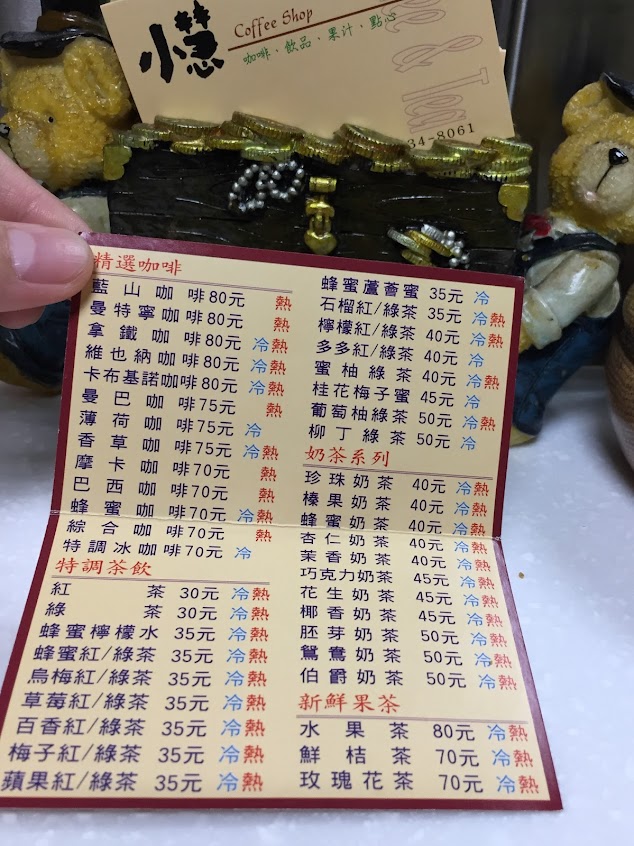 小憇
Coffee Shop
咖啡、飲品、果汁、點心
& Tea
34-8061
精選咖啡
藍山咖啡80元 熱
曼特寧咖啡80元 熱
拿鐵咖啡80元 冷熱
維也納咖啡80元 冷熱
卡布基諾咖啡80元 冷熱
曼巴咖啡75元 熱
薄荷咖啡75元 冷
香草咖啡75元 冷熱
摩卡咖啡70元 熱
巴西咖啡70元 熱
蜂蜜咖啡70元 冷熱
綜合咖啡70元 熱
特調冰咖啡70元 冷
特調茶飲
紅茶 30元 冷熱
綠茶 30元 冷熱
蜂蜜檸檬水 35元 冷熱
蜂蜜紅/綠茶 35元 冷熱
烏梅紅/綠茶 35元 冷熱
草莓紅/綠茶 35元 冷熱
百香紅/綠茶 35元 冷熱
梅子紅/綠茶 35元 冷熱
蘋果紅/綠茶 35元 冷熱
蜂蜜蘆薈蜜 35元 冷
石榴紅/綠茶 35元 冷熱
檸檬紅/綠茶 40元 冷熱
多多紅/綠茶 40元 冷
蜜柚綠茶 40元 冷熱
桂花梅子蜜 45元 冷
葡萄柚綠茶 50元 冷熱
柳丁綠茶 50元 冷
奶茶系列
珍珠奶茶 40元 冷熱
榛果奶茶 40元 冷熱
蜂蜜奶茶 40元 冷熱
杏仁奶茶 40元 冷熱
茉香奶茶 40元 冷熱
巧克力奶茶 45元 冷熱
花生奶茶 45元 冷熱
椰香奶茶 45元 冷熱
胚芽奶茶 50元 冷熱
鴛鴦奶茶 50元 冷熱
伯爵奶茶 50元 冷熱
新鮮果茶
水果茶 80元 冷熱
鮮桔茶 70元 冷熱
玫瑰花茶 70元 冷熱